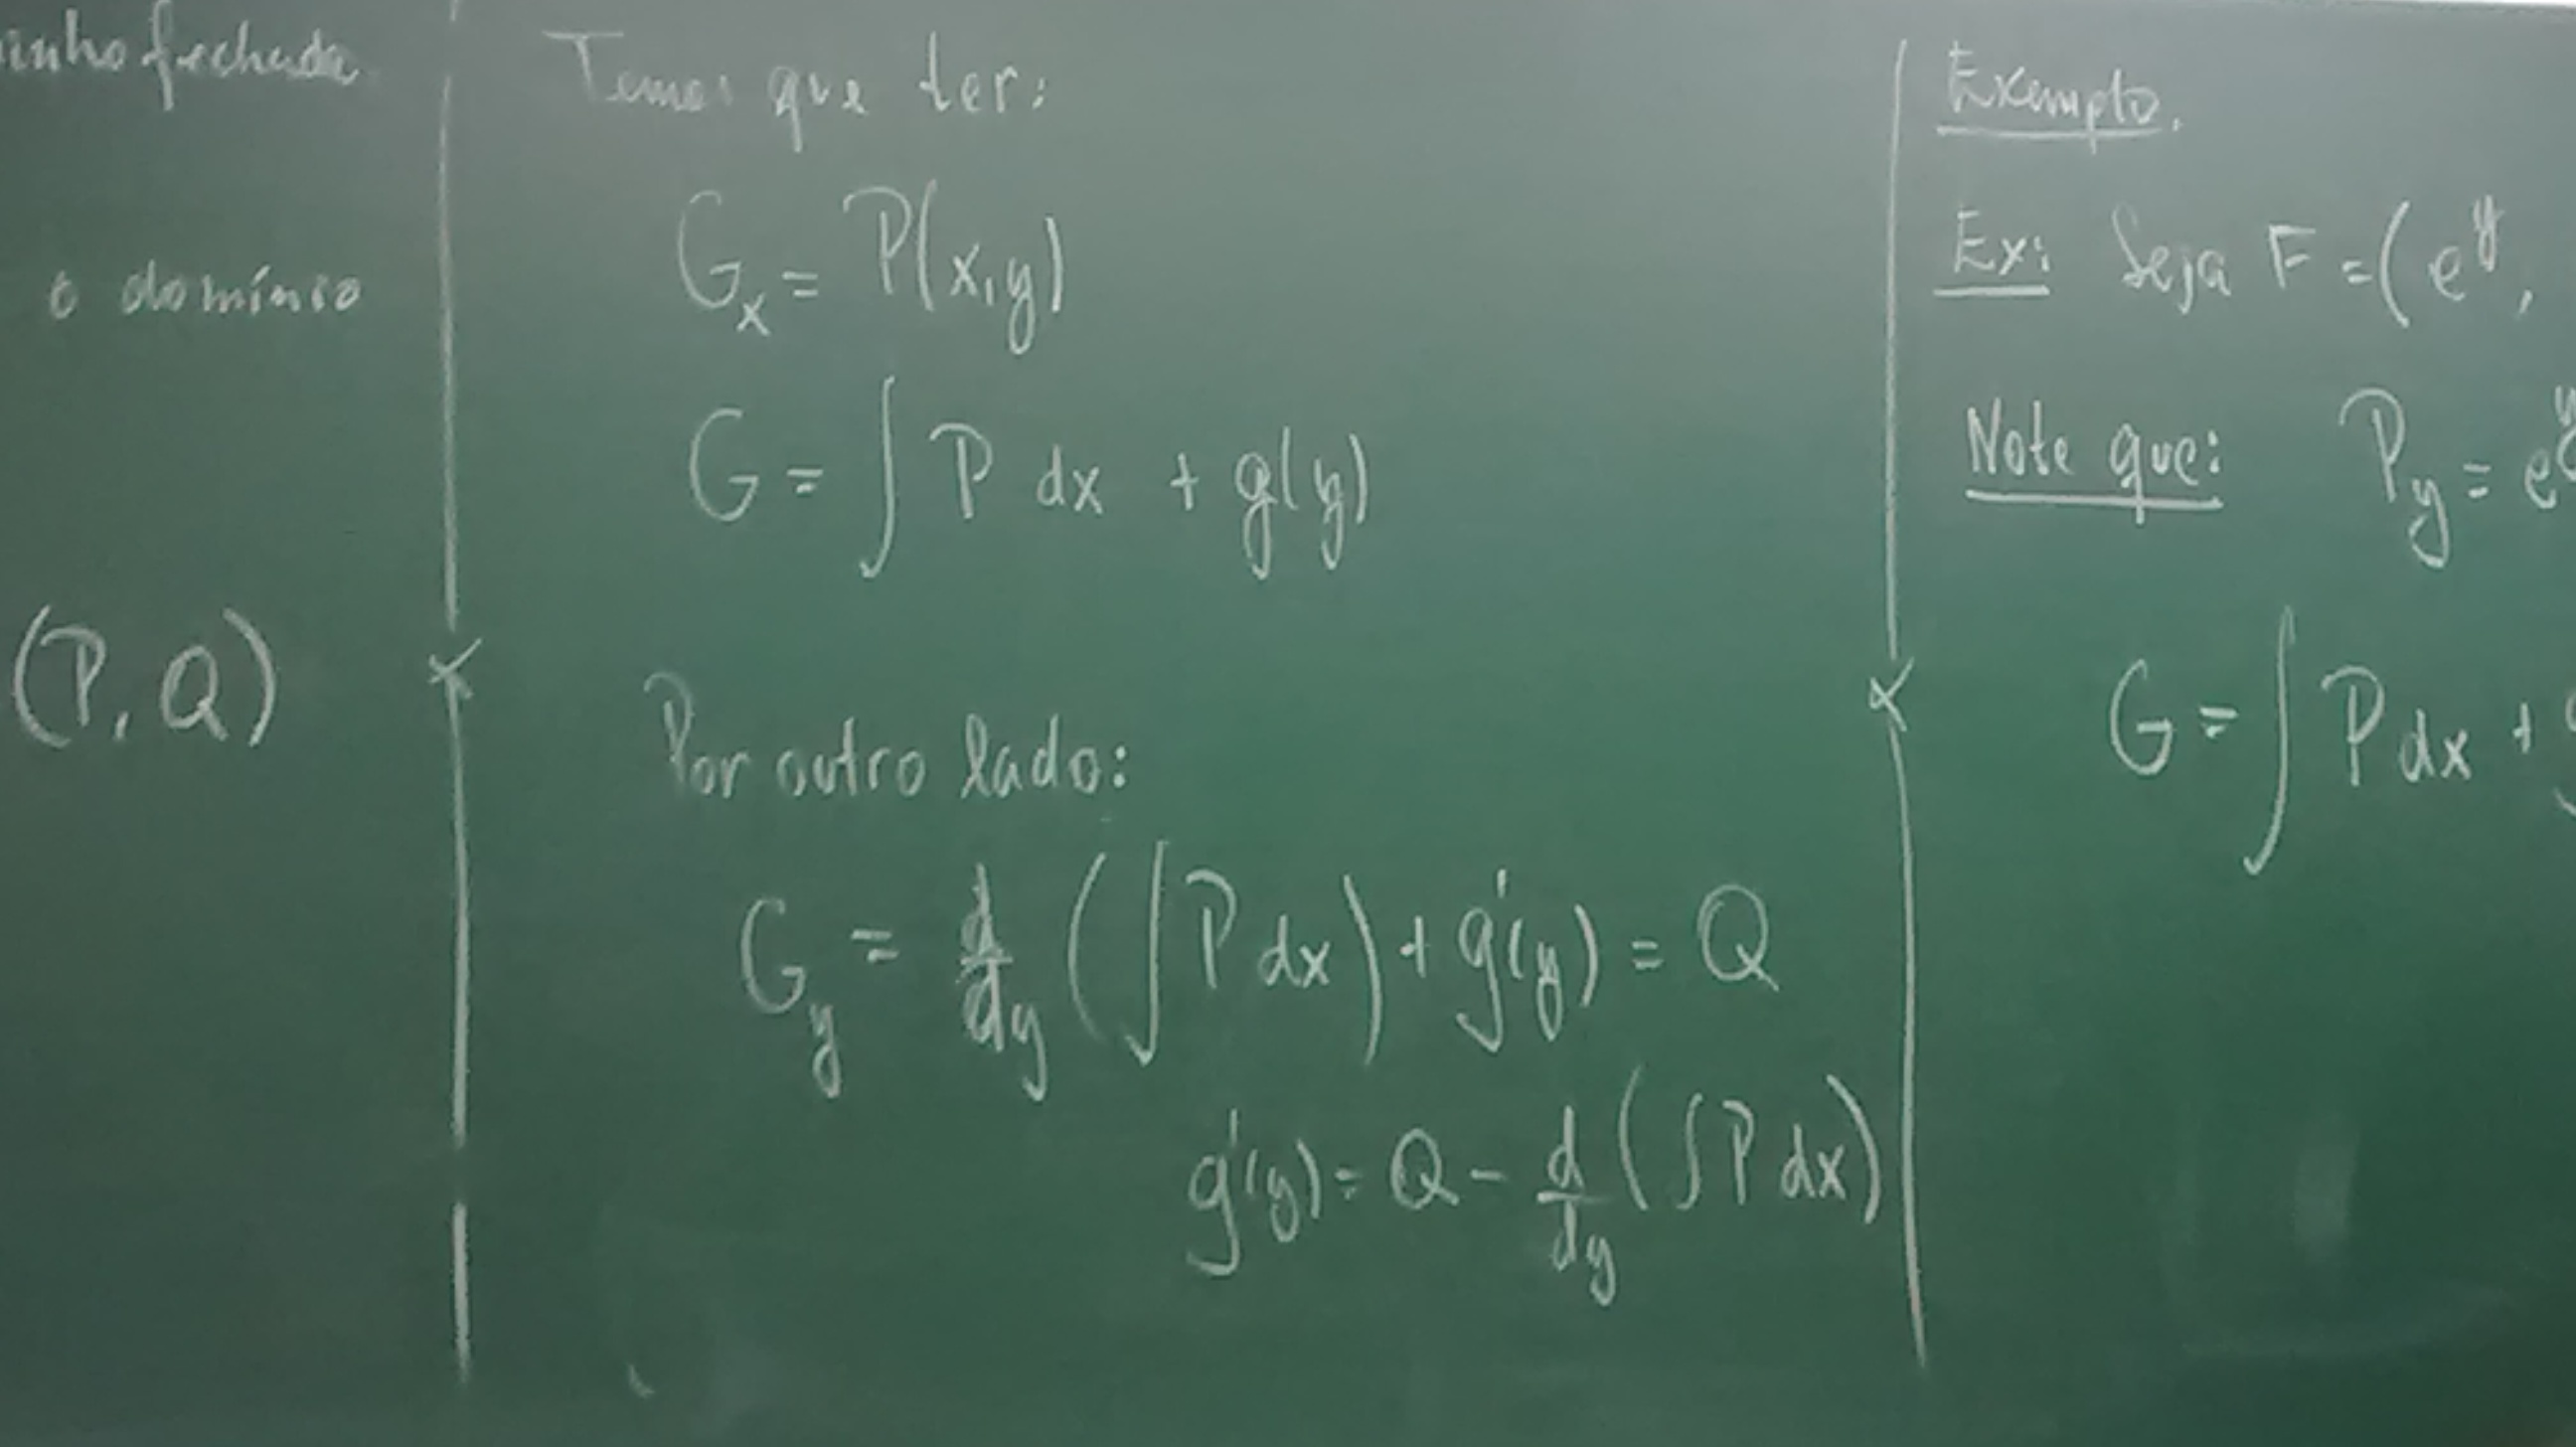 inho fechado
o domínio
(P, Q)
Temos que ter:
G_x = P(x,y)
G = ∫ P dx + g(y)
Por outro lado:
G_y = d/dy (∫ P dx) + g'(y) = Q
g'(y) = Q - d/dy (∫ P dx)
Exemplo.
Ex: Seja F = (e^y,
Note que: P_y = e^y
G = ∫ P dx +